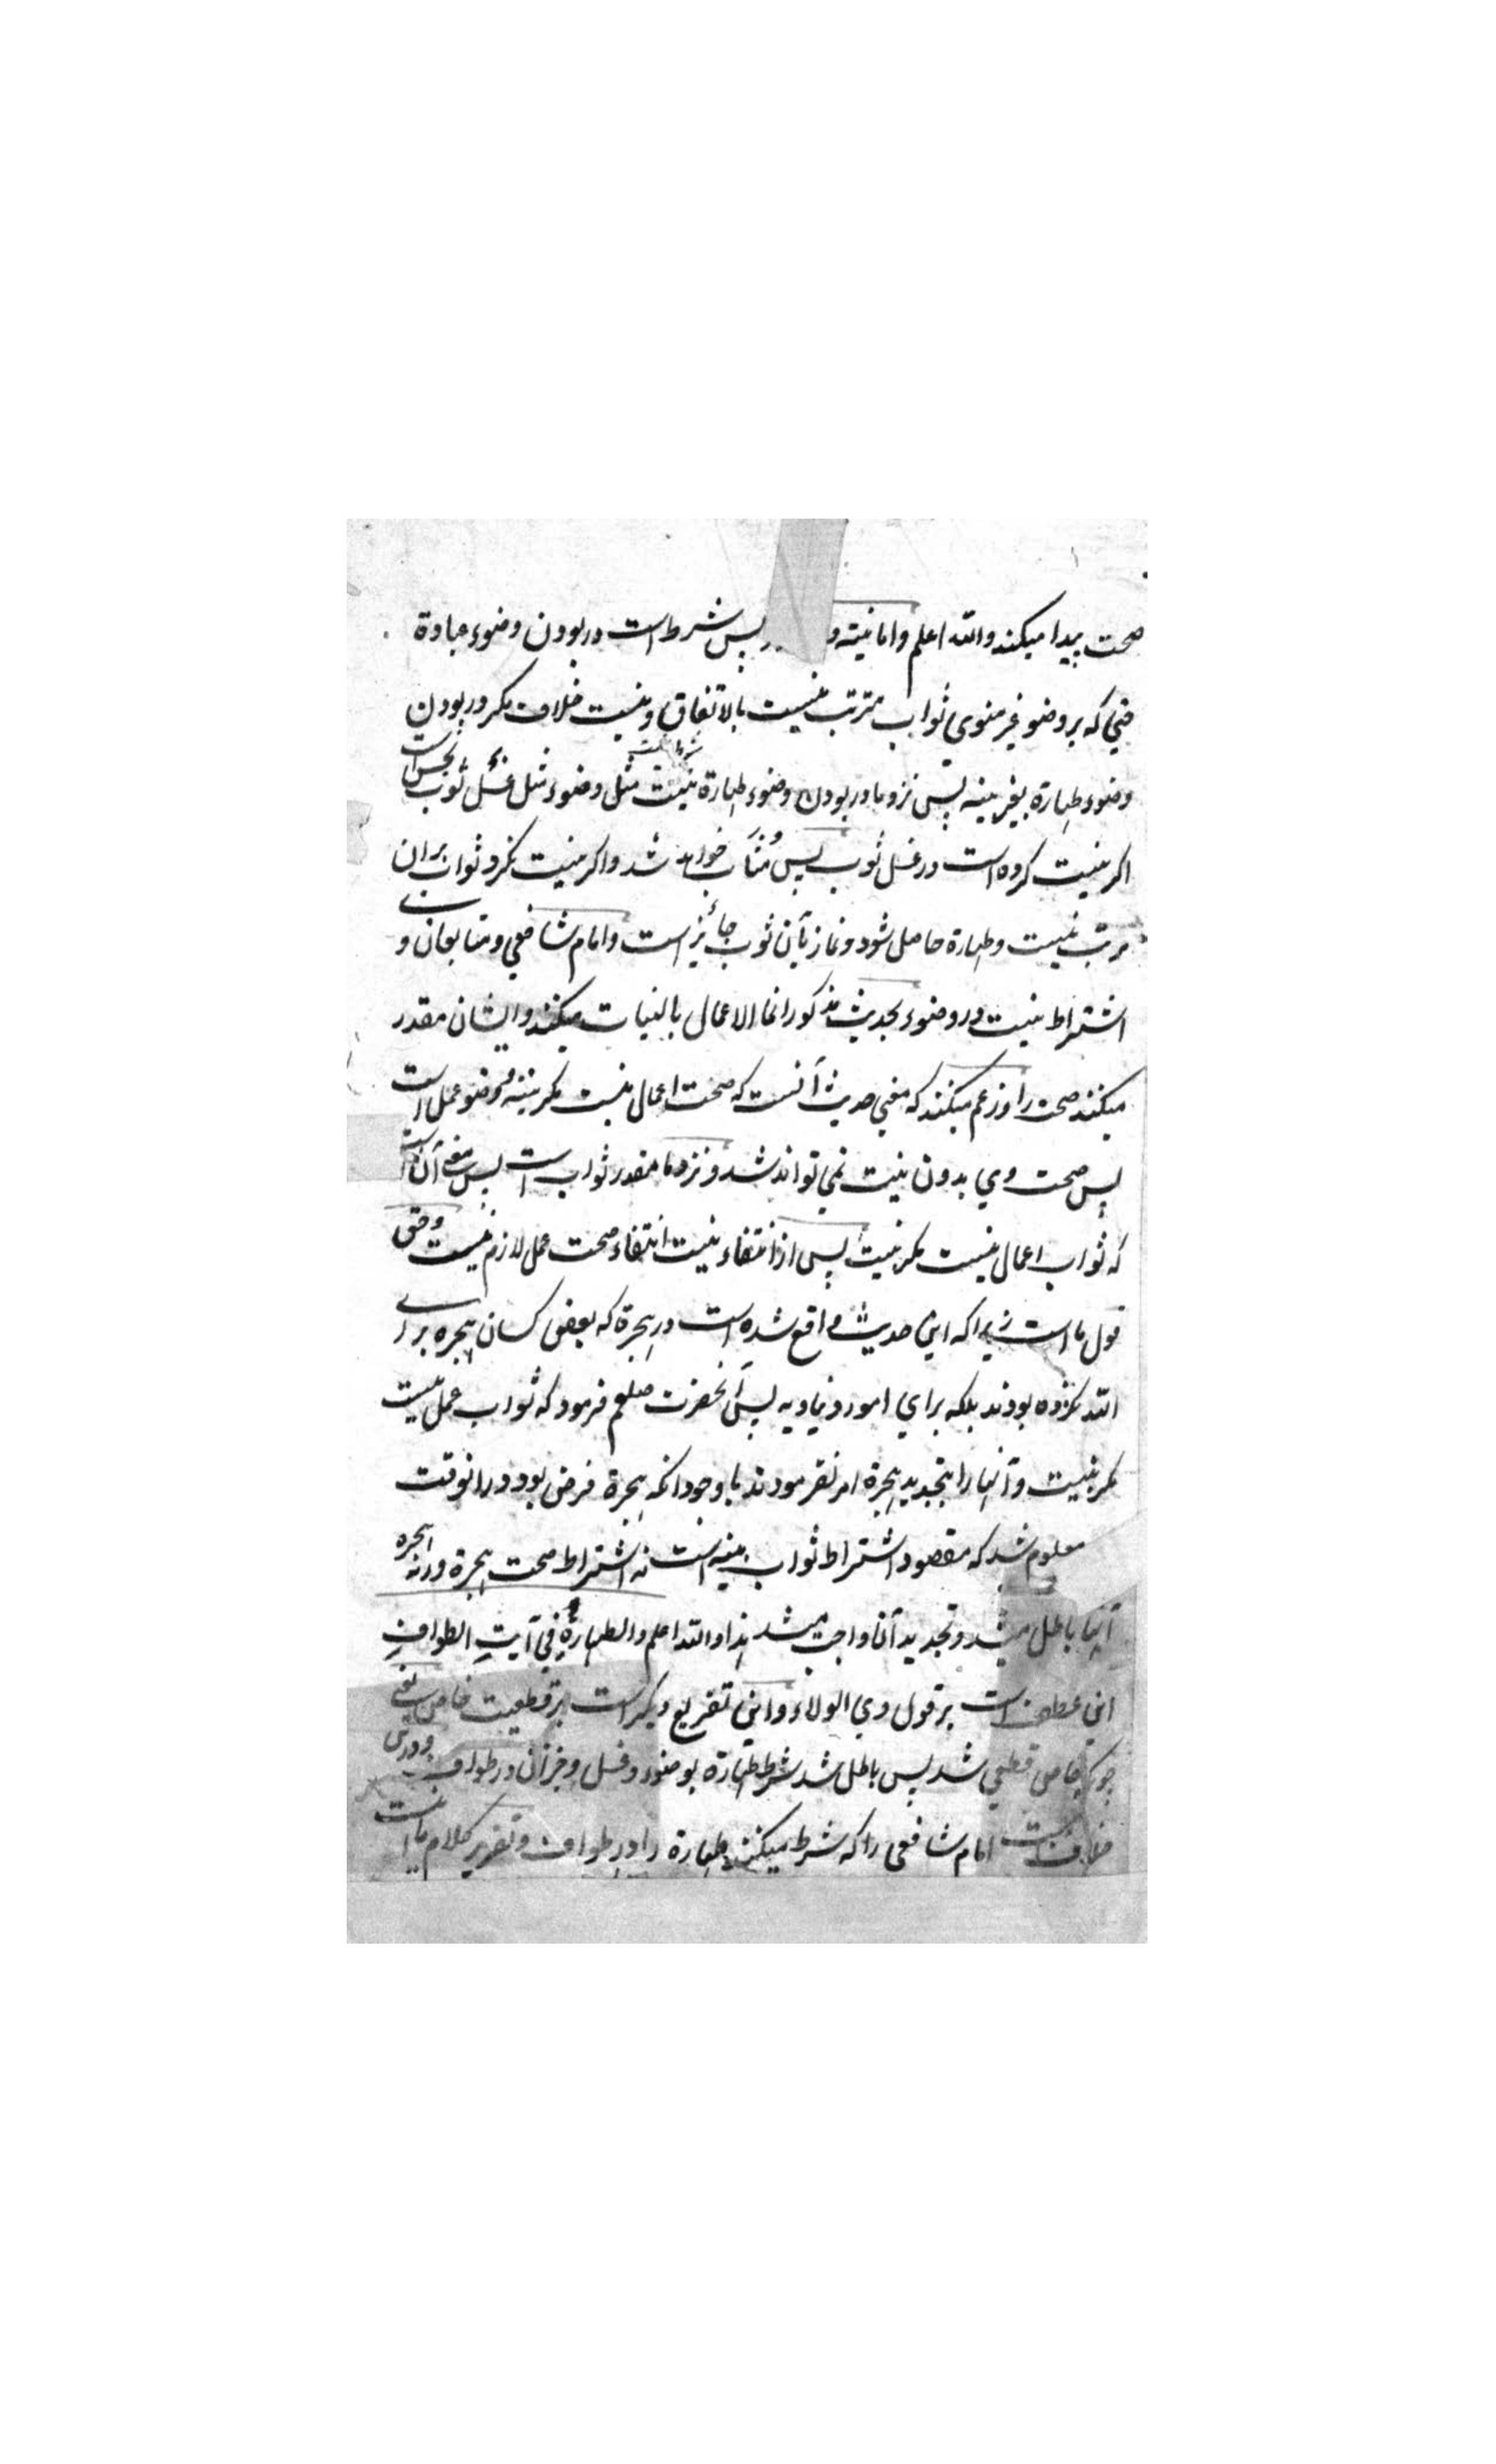 صحت پیدا میکند والله اعلم واما نیته و پس شرط است در بودن وضوء عبادة
حتي که بر وضو غیر منوي ثواب مترتب نیست بالاتفاق ونیست خلاف مکر در بودن
وضوء طهارة بغیر نیته پس نزد ما در بودن وضوء طهارة نیت شرط نیست مثل وضوء مثل غسل ثوب نجس است
اکر نیت کرده است در غسل ثوب پس مُثاب خواهد شد واکر نیت نکرد ثواب بران
مرتب نیست وطهارة حاصل شود ونماز بآن ثوب جائز است وامام شافعي ومتابعان وے
اشتراط نیت در وضوء بحدیث مذکور انما الاعمال بالنیات میکنند وایشان مقدر
میکنند صحت را وزعم میکنند که معني حدیث آنست که صحت اعمال نیست مکر بنیته ووضو عمل است
پس صحت وي بدون نیت نمي تواند شد ونزد ما مقدر ثواب است پس معنے آن است
که ثواب اعمال نیست مکر بنیت پس از انتفاء نیت انتفاء صحت عمل لازم نیست وحق
قول ما است زیرا که این حدیث واقع شده است در هجرة که بعضی کسان هجره براے
الله نکرده بودند بلکه براي امور دنیاویه پس آنحضرت صلعم فرمود که ثواب عمل نیست
مکر بنیت وآنها را بتجدید هجرة امر نفرمودند با وجود آنکه هجرة فرض بود در انوقت
معلوم شد که مقصود اشتراط ثواب بنیه است نه اشتراط صحت هجرة ورنه هجره
آنها باطل میشد وتجدید آنا واجب میشد هذا والله اعلم والطهارةِ في آیتِ الطوافِ
این عطف است بر قول وي الولاء واین تفریع دیکر است بر قطعیت خاص یعنے
چونکه خاص قطعي شد پس باطل شد شرط طهارة بوضوء وغسل وجز آن در طواف ودرین
خلاف است امام شافعی را که شرط میکنند طهارة را در طواف وتقریر کلام ما است